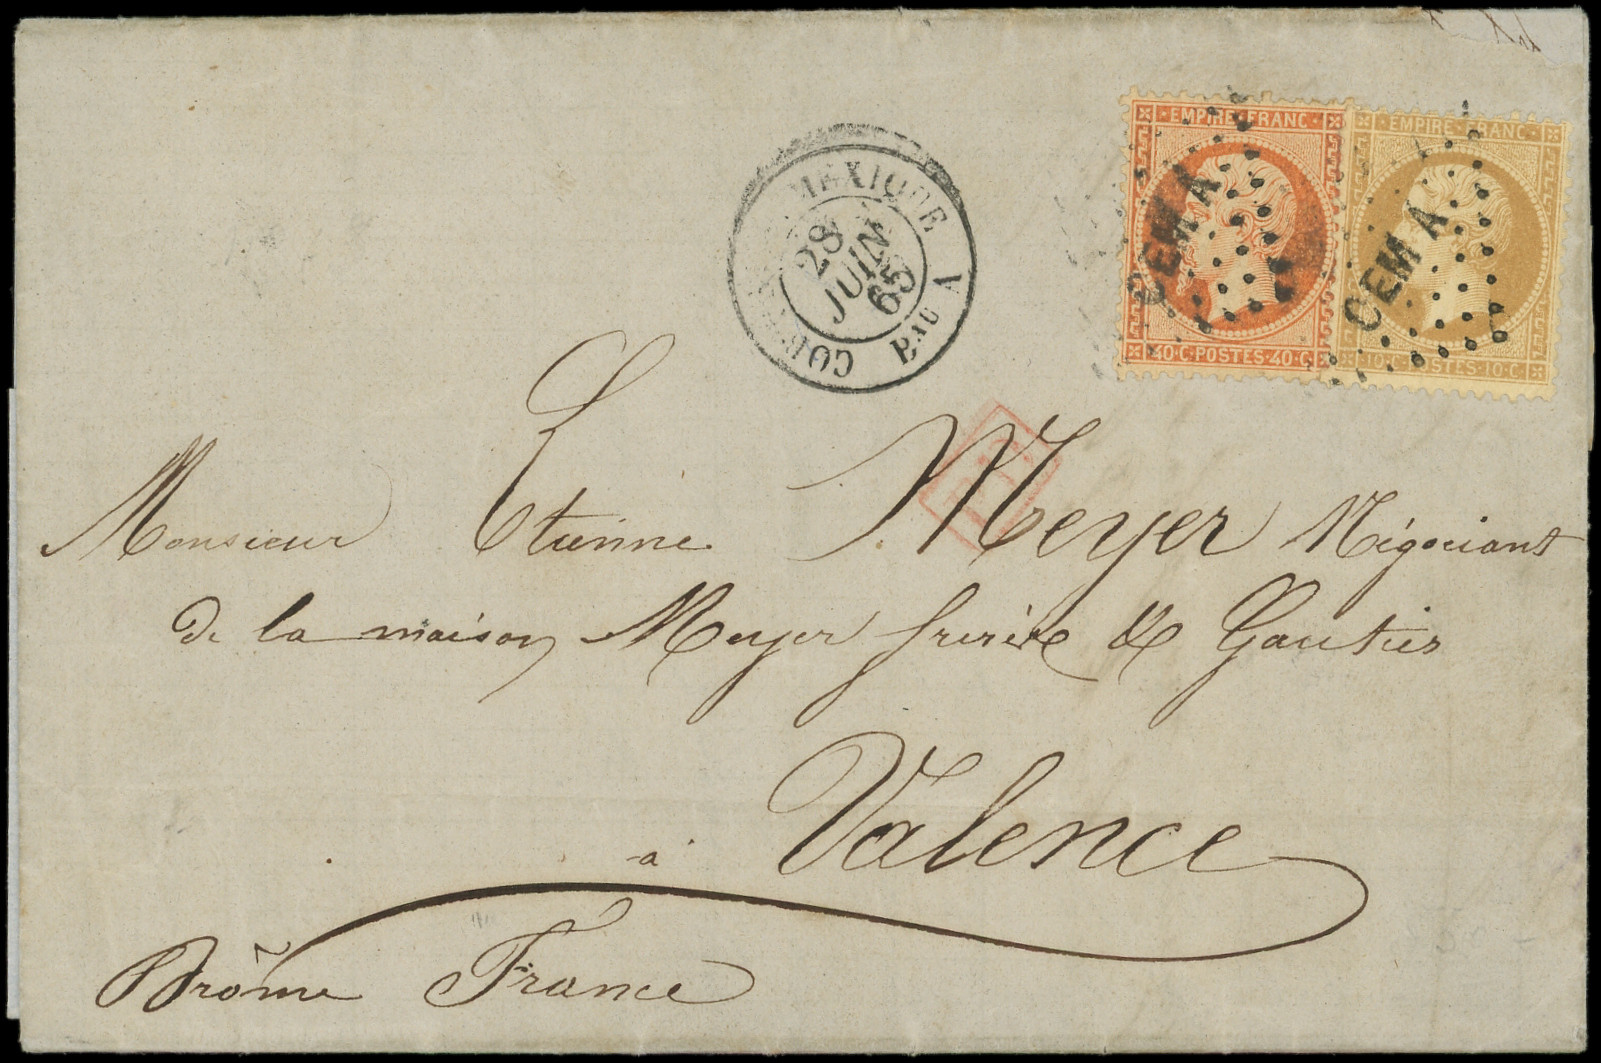 EMPIRE · FRANC ·
40 · C · POSTES · 40 · C ·
CEM A
EMPIRE · FRANC ·
10 · C · POSTES · 10 · C ·
CEM A
MEXIQUE
28
JUIN
65
Bau A
Monsieur Etienne Meyer Négociant
de la maison Meyer frère & Gautier
à Valence
Drôme France